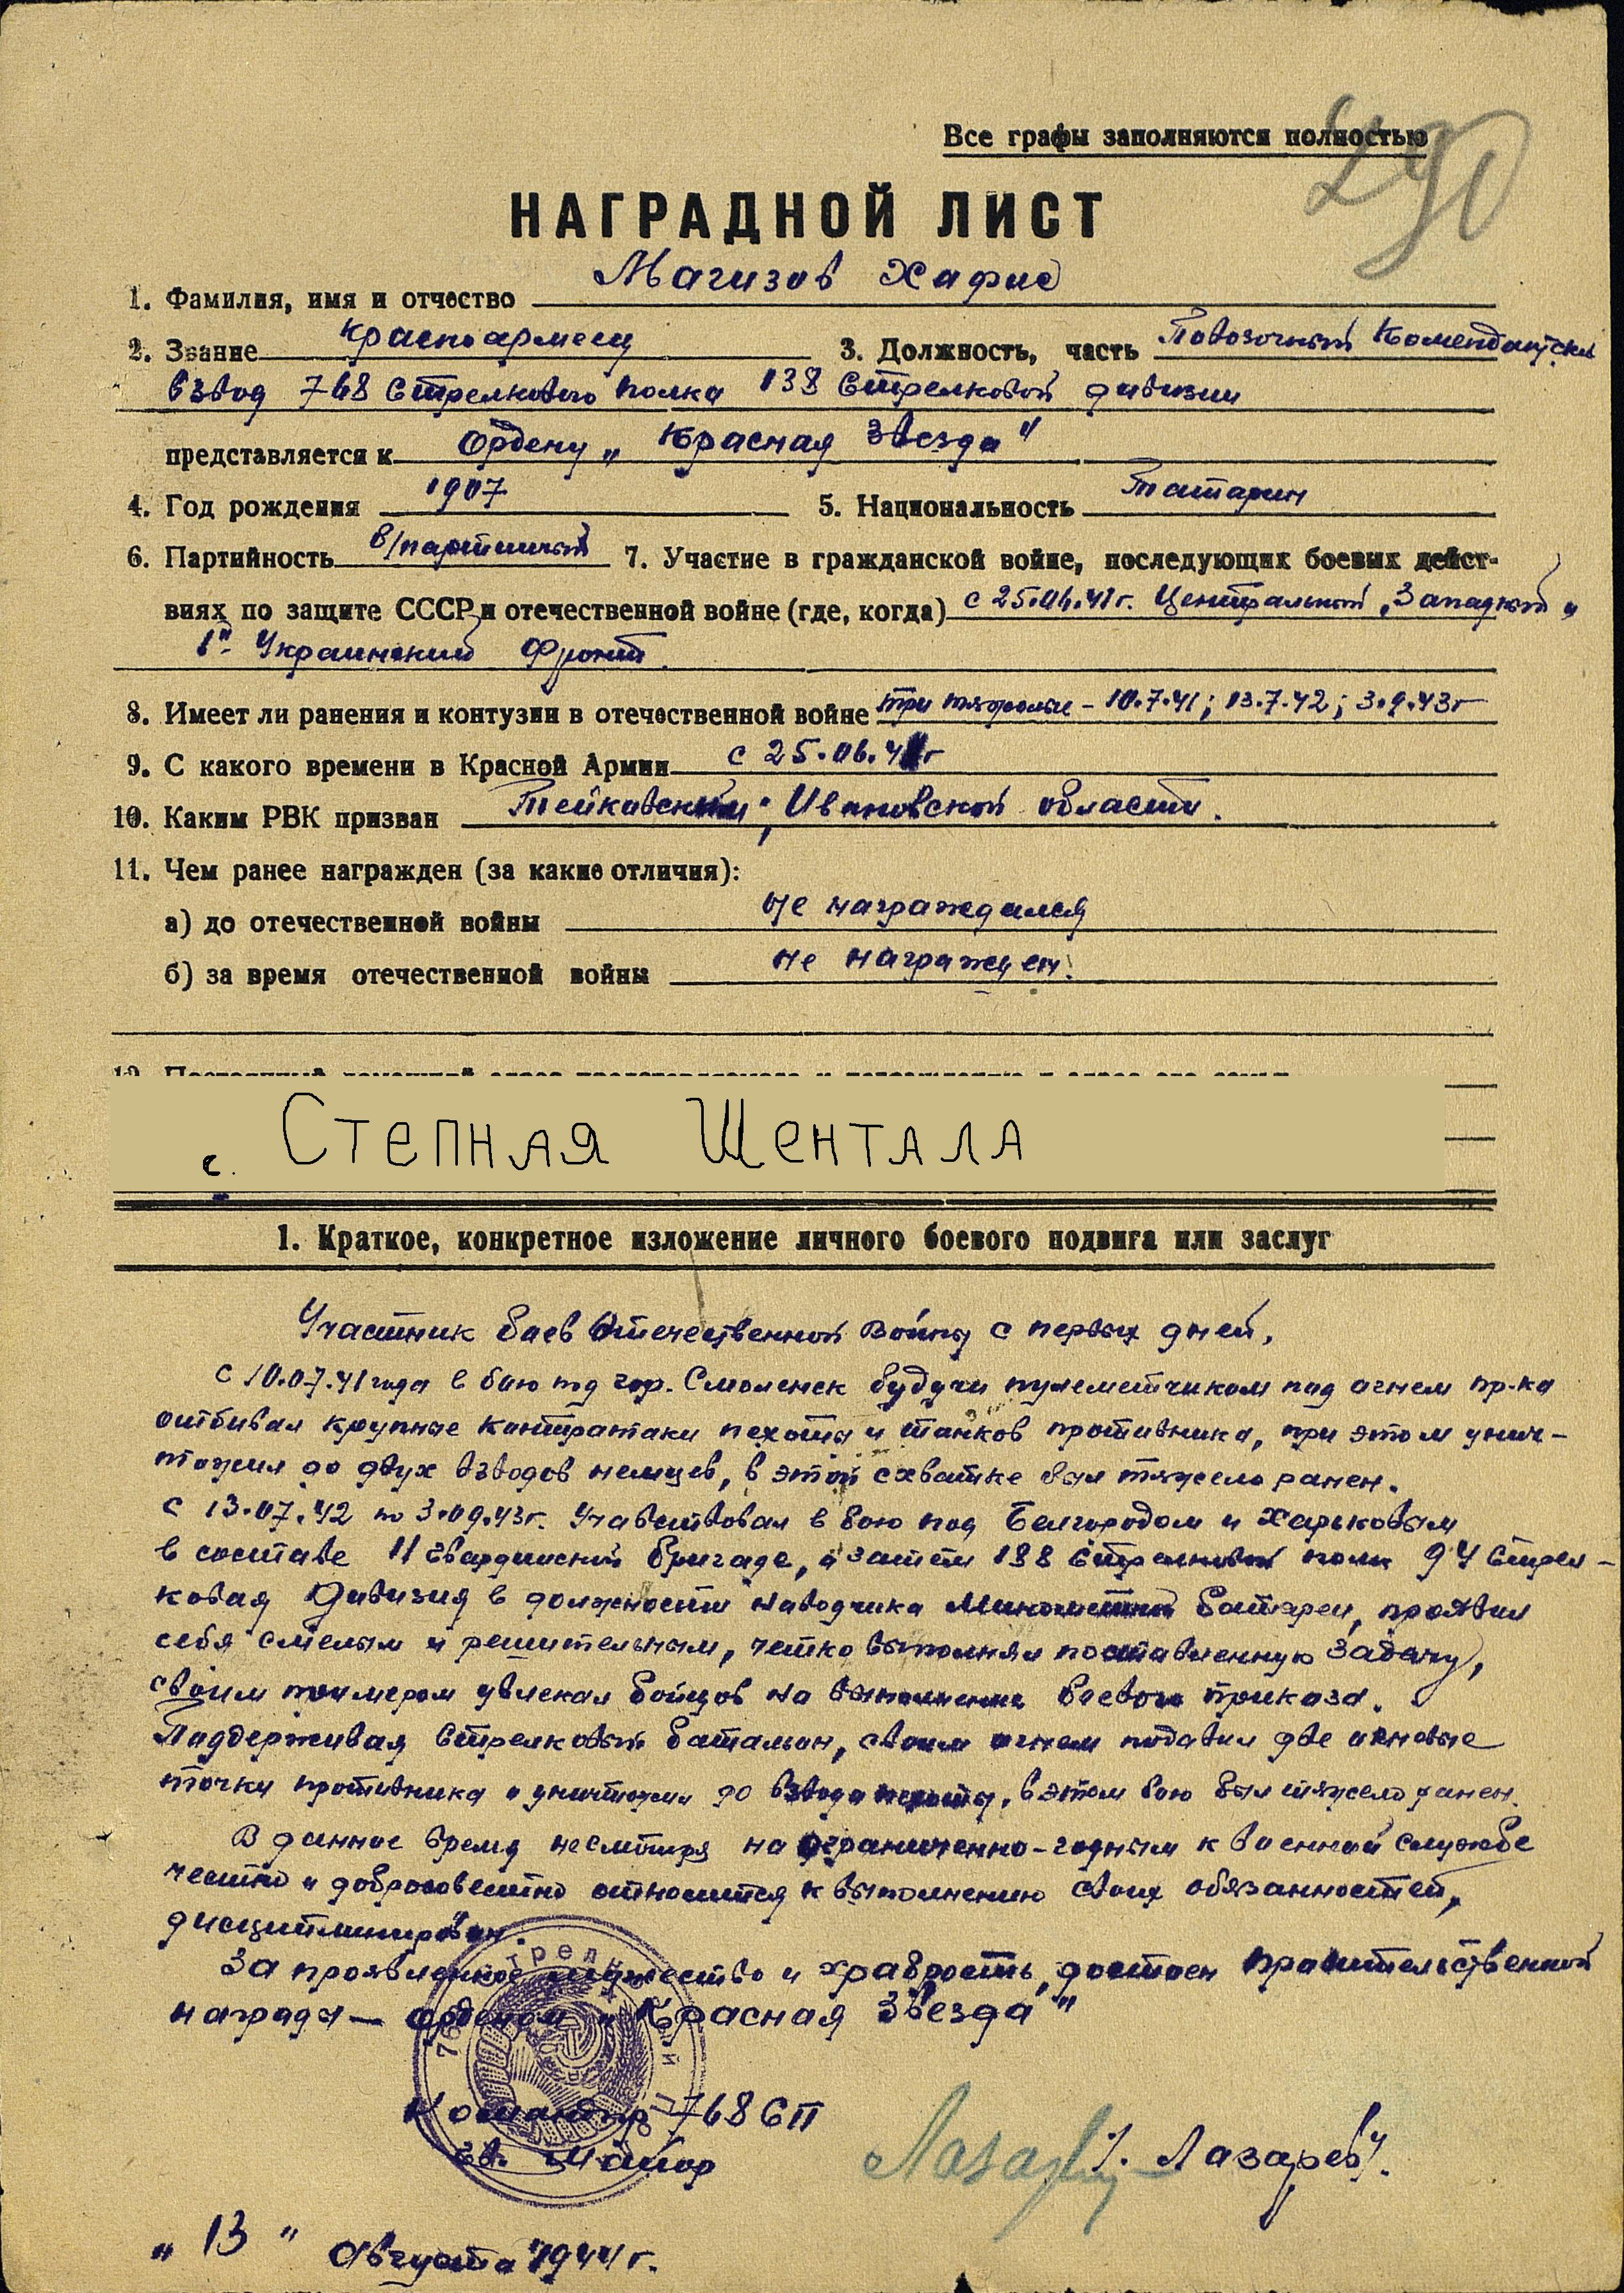 Все графы заполняются полностью
290
НАГРАДНОЙ ЛИСТ
1. Фамилия, имя и отчество Магизов Хафис
2. Звание красноармеец 3. Должность, часть Повозочный Комендантск.
взвод 768 Стрелкового полка 138 Стрелковой дивизии
представляется к Ордену „Красная Звезда"
4. Год рождения 1907 5. Национальность Татарин
6. Партийность б/партийный 7. Участие в гражданской войне, последующих боевых дейст-
виях по защите СССР и отечественной войне (где, когда) с 25.06.41г. Центральный, Западный и
1й Украинский фронт.
8. Имеет ли ранения и контузии в отечественной войне три тяжелые – 10.7.41; 13.7.42; 3.9.43г
9. С какого времени в Красной Армии с 25.06.41г
10. Каким РВК призван Тейковским, Ивановской области.
11. Чем ранее награжден (за какие отличия):
а) до отечественной войны не награждался
б) за время отечественной войны не награжден.
с. Степная Шентала
1. Краткое, конкретное изложение личного боевого подвига или заслуг
Участник боев Отечественной войны с первых дней.
С 10.07.41 года в бою под гор. Смоленск будучи пулеметчиком под огнем пр-ка
отбивал крупные контратаки пехоты и танков противника, при этом унич-
тожил до двух взводов немцев, в этой схватке был тяжело ранен.
С 13.07.42 по 3.09.43г. Учавствовал в бою под Белгородом и Харьковым
в составе 11 Гвардейской бригаде, а затем 188 Стрелковый полк 94 Стрел-
ковая Дивизия в должности наводчика Минометной батареи, проявил
себя смелым и решительным, четко выполнял поставленную задачу,
своим примером увлекал бойцов на выполнение боевого приказа.
Поддерживая Стрелковый батальон, своим огнем подавил две огневые
точки противника и уничтожил до взвода пехоты, в этом бою был тяжело ранен.
В данное время несмотря на ограниченно-годным к военной службе
честно и добросовестно относится к выполнению своих обязанностей,
дисциплинирован.
За проявленное мужество и храбрость, достоен правительственной
награды — орденом „Красная Звезда"
Командир 768 СП
гв. Майор Лазарев /. Лазарев/.
„13" Августа 1944г.